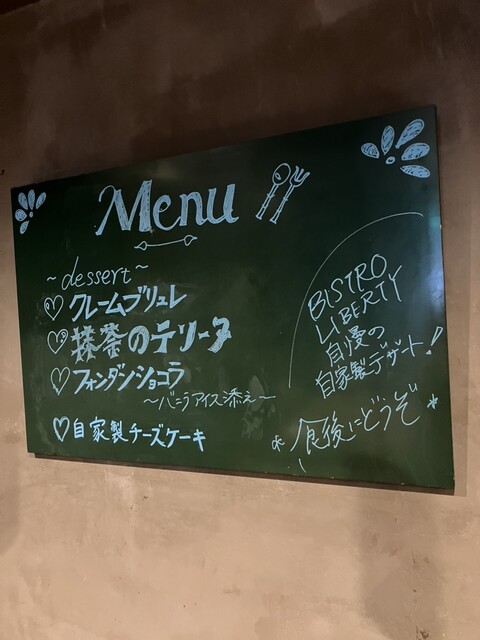 Menu
~dessert~
♡クレームブリュレ
♡抹茶のテリーヌ
♡フォンダンショコラ
~バニラアイス添え~
♡自家製チーズケーキ
BISTRO
LIBERTY
自慢の
自家製デザート!
*食後にどうぞ*